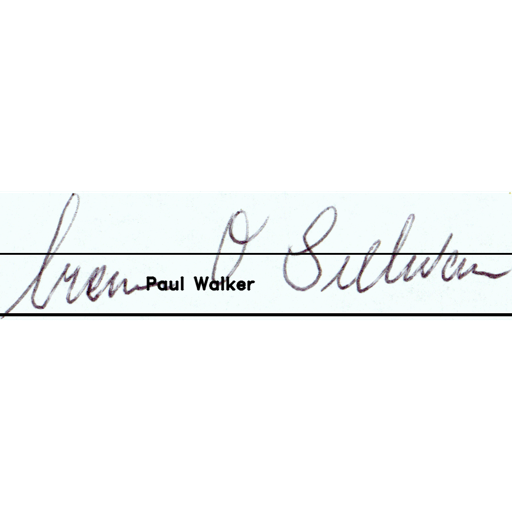 O Sullivan
Paul Walker